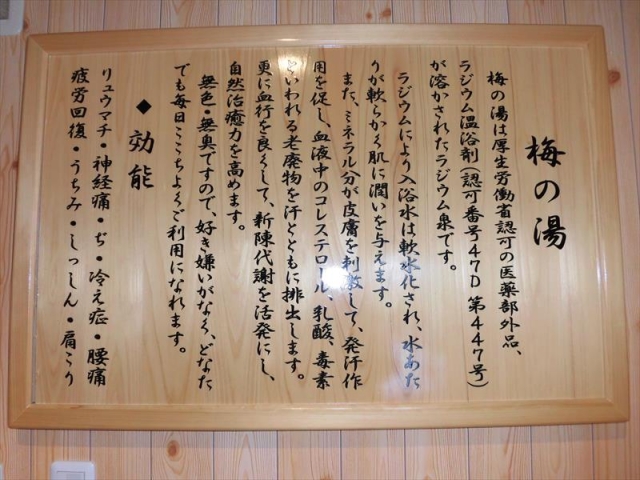 梅の湯
梅の湯は厚生労働省認可の医薬部外品、
ラジウム温浴剤(認可番号47D 第447号)
が溶かされたラジウム泉です。
ラジウムにより入浴水は軟水化され、水あた
りが軟らかく肌に潤いを与えます。
また、ミネラル分が皮膚を刺激して、発汗作
用を促し、血液中のコレステロール、乳酸、毒素
といわれる老廃物を汗とともに排出します。
更に血行を良くして、新陳代謝を活発にし、
自然治癒力を高めます。
無色・無臭ですので、好き嫌いがなく、どなた
でも毎日ここちよくご利用になれます。
◆効能
リュウマチ・神経痛・ぢ・冷え症・腰痛
疲労回復・うちみ・しっしん・肩こり